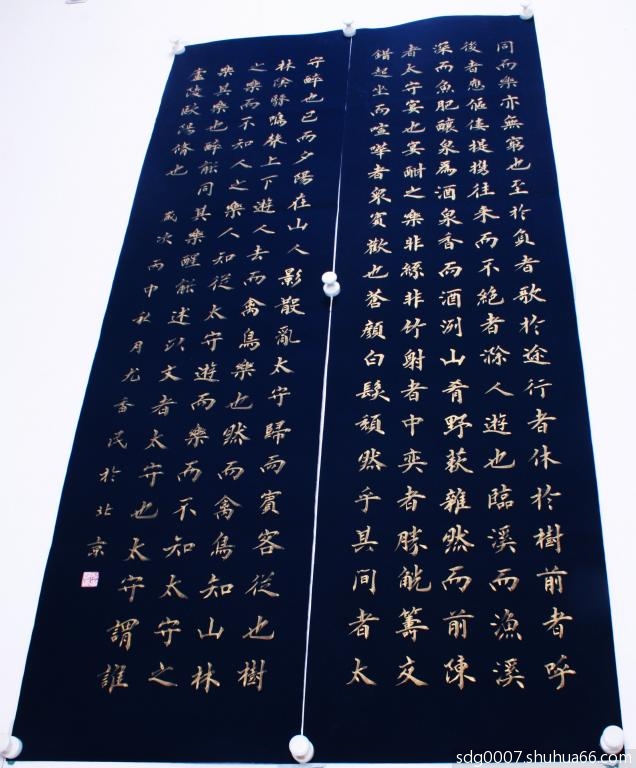 同而樂亦無窮也至於負者歌於途行者休於樹前者呼
後者應傴僂提攜往來而不絕者滁人遊也臨溪而漁溪
深而魚肥釀泉為酒泉香而酒洌山肴野蔌雜然而前陳
者太守宴也宴酣之樂非絲非竹射者中奕者勝觥籌交
錯起坐而喧嘩者眾賓歡也蒼顏白髮頹然乎其間者太
守醉也已而夕陽在山人影散亂太守歸而賓客從也樹
林陰翳鳴聲上下遊人去而禽鳥樂也然而禽鳥知山林
之樂而不知人之樂人知從太守遊而樂而不知太守之
樂其樂也醉能同其樂醒能述以文者太守也太守謂誰
廬陵歐陽脩也 歲次丙申秋月尤民於北京
sdg0007.shuhua66.com